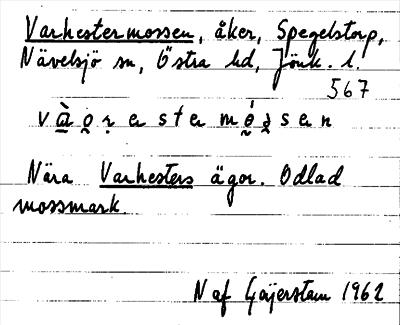 Varhestermossen, åker, Spegelstorp,
Nävelsjö sn, Östra hd, Jönk. l.
567
Nära Varhesters ägor. Odlad
mossmark.
N af Geijerstam 1962